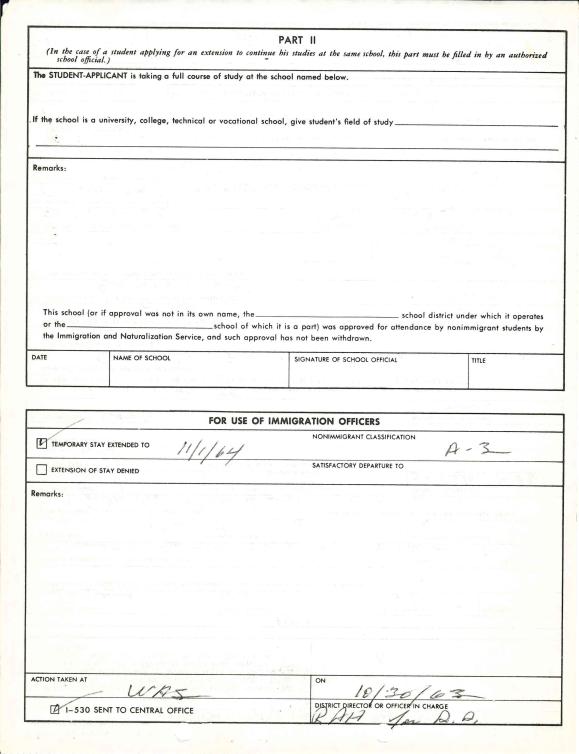 PART II
(In the case of a student applying for an extension to continue his studies at the same school, this part must be filled in by an authorized
school official.)
The STUDENT-APPLICANT is taking a full course of study at the school named below.
If the school is a university, college, technical or vocational school, give student's field of study
Remarks:
This school (or if approval was not in its own name, the school district under which it operates
or the school of which it is a part) was approved for attendance by nonimmigrant students by
the Immigration and Naturalization Service, and such approval has not been withdrawn.
DATE NAME OF SCHOOL SIGNATURE OF SCHOOL OFFICIAL TITLE
FOR USE OF IMMIGRATION OFFICERS
TEMPORARY STAY EXTENDED TO 11/1/64 NONIMMIGRANT CLASSIFICATION A-3
EXTENSION OF STAY DENIED SATISFACTORY DEPARTURE TO
Remarks:
ACTION TAKEN AT WAS ON 10/30/63
I-530 SENT TO CENTRAL OFFICE DISTRICT DIRECTOR OR OFFICER IN CHARGE
RAH for D.D.